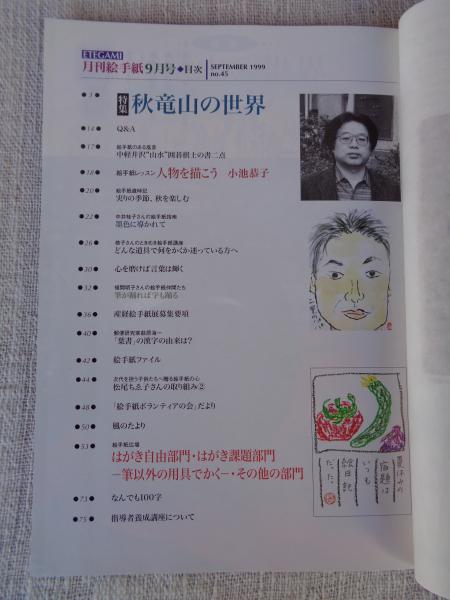 ETEGAMI
月刊絵手紙9月号◆目次
SEPTEMBER 1999
no.45
●3●
特集
秋竜山の世界
●14●
Q&A
●17●
絵手紙のある風景
中軽井沢"山水"囲碁棋士の書二点
●18●
絵手紙レッスン 人物を描こう 小池恭子
●20●
絵手紙歳時記
実りの季節、秋を楽しむ
●22●
中井桂子さんの絵手紙指南
墨色に導かれて
●26●
恭子さんのときめき絵手紙講座
どんな道具で何をかくか迷っている方へ
●30●
心を磨けば言葉は輝く
●32●
槌間明子さんの絵手紙仲間たち
筆が踊れば字も踊る
●36●
産経絵手紙展募集要項
●40●
郵便研究家萩原海一
「葉書」の漢字の由来は?
●42●
絵手紙ファイル
●44●
次代を担う子供たちへ贈る絵手紙の心
松尾ちゑ子さんの取り組み②
●48●
「絵手紙ボランティアの会」だより
●50●
風のたより
●53●
絵手紙広場
はがき自由部門・はがき課題部門
―筆以外の用具でかく―・その他の部門
●73●
なんでも100字
●75●
指導者養成講座について
夏休みの
宿題は
いつも
絵日記
だった。